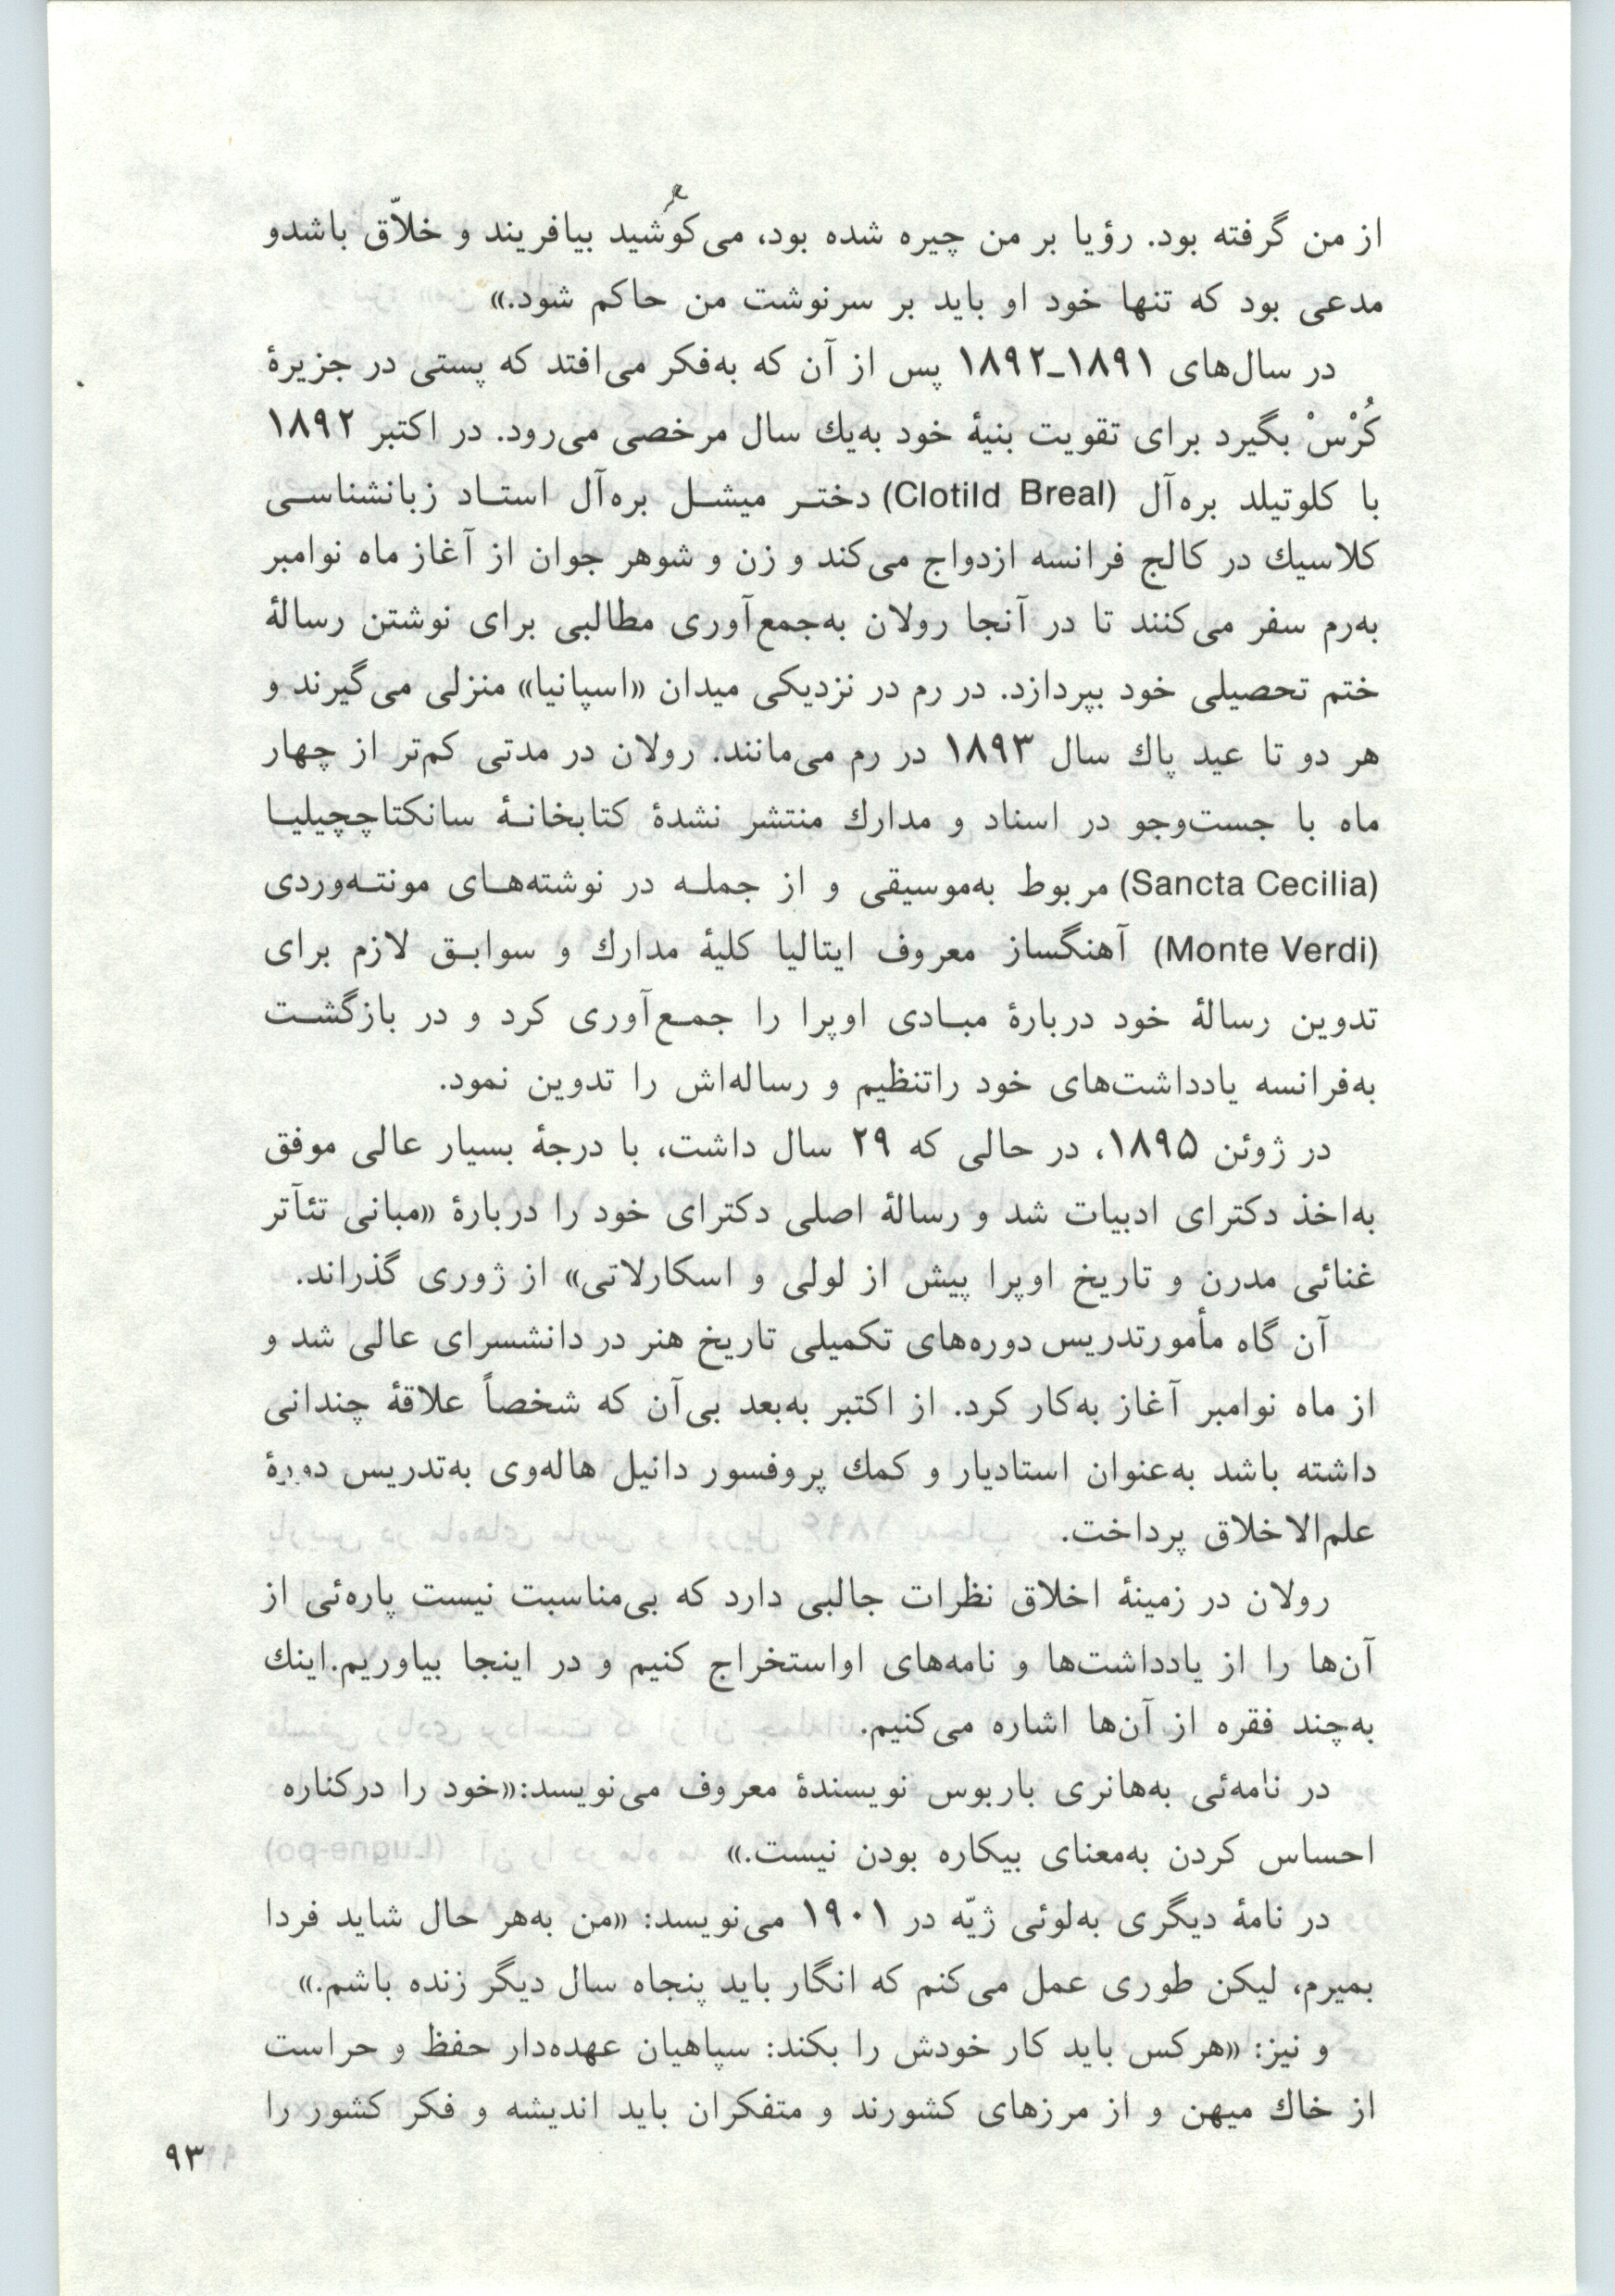 از من گرفته بود. رؤیا بر من چیره شده بود، می‌کوشید بیافریند و خلاّق باشدو
مدعی بود که تنها خود او باید بر سرنوشت من حاکم شود.»
در سال‌های ۱۸۹۱ـ۱۸۹۲ پس از آن که به‌فکر می‌افتد که پستی در جزیرهٔ
کُرْسْ بگیرد برای تقویت بنیهٔ خود به‌یك سال مرخصی می‌رود. در اکتبر ۱۸۹۲
با کلوتیلد بره‌آل (Clotild Breal) دختـر میشـل بره‌آل استـاد زبانشناسـی
کلاسیك در کالج فرانسه ازدواج می‌کند و زن و شوهر جوان از آغاز ماه نوامبر
به‌رم سفر می‌کنند تا در آنجا رولان به‌جمع‌آوری مطالبی برای نوشتن رسالهٔ
ختم تحصیلی خود بپردازد. در رم در نزدیکی میدان «اسپانیا» منزلی می‌گیرند و
هر دو تا عید پاك سال ۱۸۹۳ در رم می‌مانند. رولان در مدتی کم‌تر از چهار
ماه با جست‌وجو در اسناد و مدارك منتشر نشدهٔ کتابخانـهٔ سانکتاچچیلیـا
(Sancta Cecilia) مربوط به‌موسیقی و از جملـه در نوشته‌هـای مونتـه‌وردی
(Monte Verdi) آهنگساز معروف ایتالیا کلیهٔ مدارك و سوابـق لازم برای
تدوین رسالهٔ خود دربارهٔ مبـادی اوپرا را جمـع‌آوری کرد و در بازگشـت
به‌فرانسه یادداشت‌های خود راتنظیم و رساله‌اش را تدوین نمود.
در ژوئن ۱۸۹۵، در حالی که ۲۹ سال داشت، با درجهٔ بسیار عالی موفق
به‌اخذ دکترای ادبیات شد و رسالهٔ اصلی دکترای خود را دربارهٔ «مبانی تئآتر
غنائی مدرن و تاریخ اوپرا پیش از لولی و اسکارلاتی» از ژوری گذراند.
آن گاه مأمورتدریس دوره‌های تکمیلی تاریخ هنر در دانشسرای عالی شد و
از ماه نوامبر آغاز به‌کار کرد. از اکتبر به‌بعد بی‌آن که شخصاً علاقهٔ چندانی
داشته باشد به‌عنوان استادیار و کمك پروفسور دانیل هاله‌وی به‌تدریس دورهٔ
علم‌الاخلاق پرداخت.
رولان در زمینهٔ اخلاق نظرات جالبی دارد که بی‌مناسبت نیست پاره‌ئی از
آن‌ها را از یادداشت‌ها و نامه‌های اواستخراج کنیم و در اینجا بیاوریم.اینك
به‌چند فقره از آن‌ها اشاره می‌کنیم.
در نامه‌ئی به‌هانری باربوس نویسندهٔ معروف می‌نویسد:«خود را درکناره
احساس کردن به‌معنای بیکاره بودن نیست.»
در نامهٔ دیگری به‌لوئی ژیّه در ۱۹۰۱ می‌نویسد: «من به‌هر حال شاید فردا
بمیرم، لیکن طوری عمل می‌کنم که انگار باید پنجاه سال دیگر زنده باشم.»
و نیز: «هرکس باید کار خودش را بکند: سپاهیان عهده‌دار حفظ و حراست
از خاك میهن و از مرزهای کشورند و متفکران باید اندیشه و فکر کشور را
۹۳